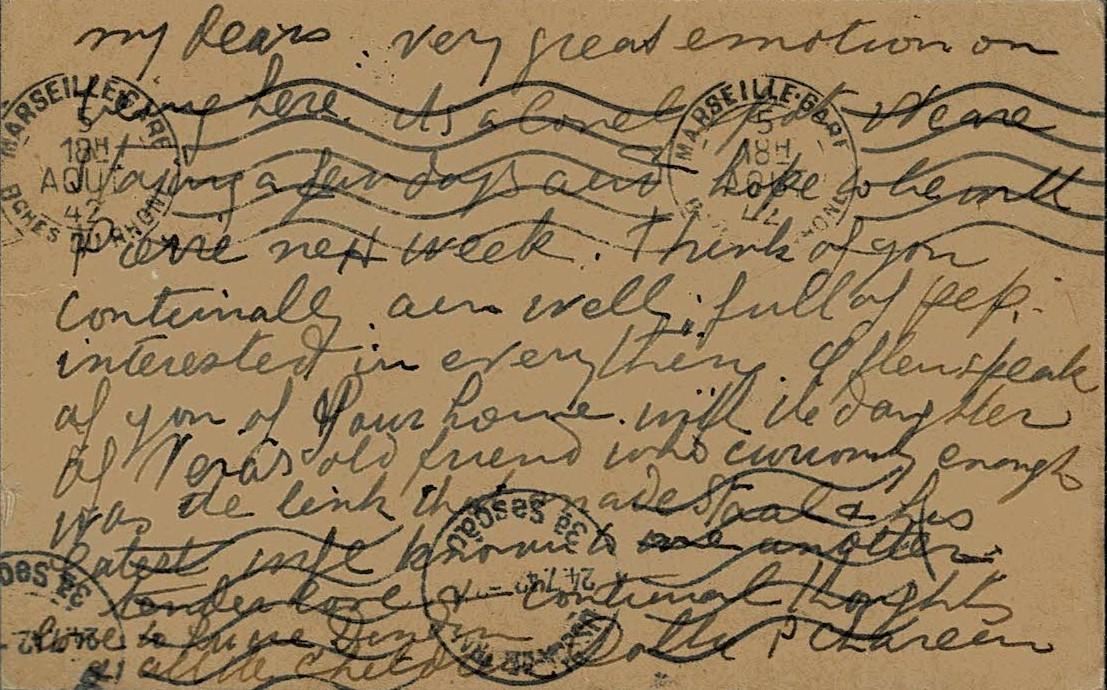 my Dears. very great emotion on
being here. Its a lovely spot. We are
staying a few days and hope to be with
Pierre next week. Think of you
continually. am well, full of pep.
interested in everything. Often speak
of you of your home. with the daughter
of Vera's old friend who curiously enough
was the link that made Staal & his
latest wife known to one another.
tender love continual thoughts
love to
all the children Dollie P Chareau
MARSEILLE-GARE
5
18H
AOUT
42
BCHES DU RHONE
MARSEILLE-GARE
5
18H
AOUT
42